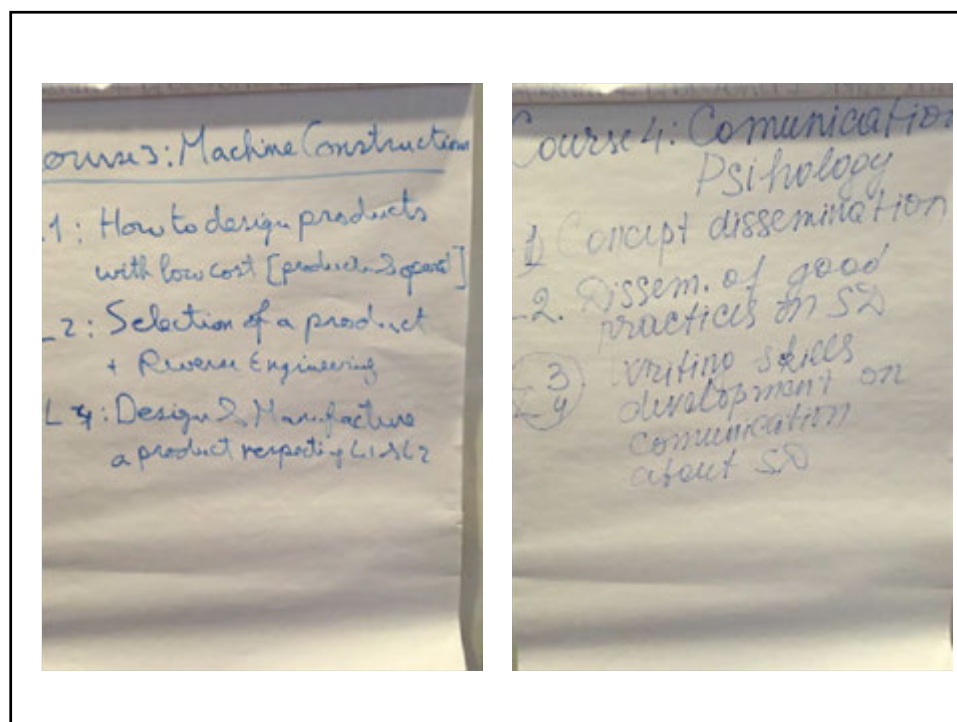 ourse3: Machine Construction
.1: How to design products
with low cost [product &
L2: Selection of a product
+ Reverse Engineering
L4: Design & Manufacture
a product respecting L1&L2
Course4: Comunication
Psihology
1) Concept dissemination
2. Dissem. of good
practices on SD
L3 writing skills
4 development on
comunication
about SD